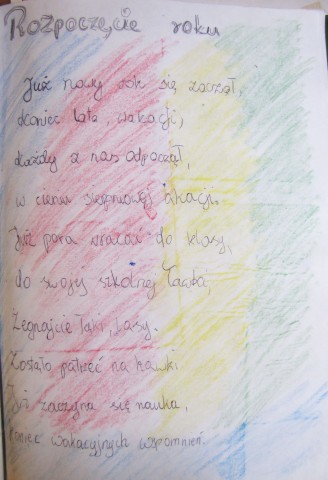 Rozpoczęcie roku
Już nowy rok się zaczął,
koniec lata, wakacji,
każdy z nas odpoczął,
w cieniu sierpniowej akacji.
Już pora wracać do klasy,
do swojej szkolnej ławki,
Żegnajcie łąki, lasy.
Zostało patrzeć na kawki.
Już zaczyna się nauka,
koniec wakacyjnych wspomnień.